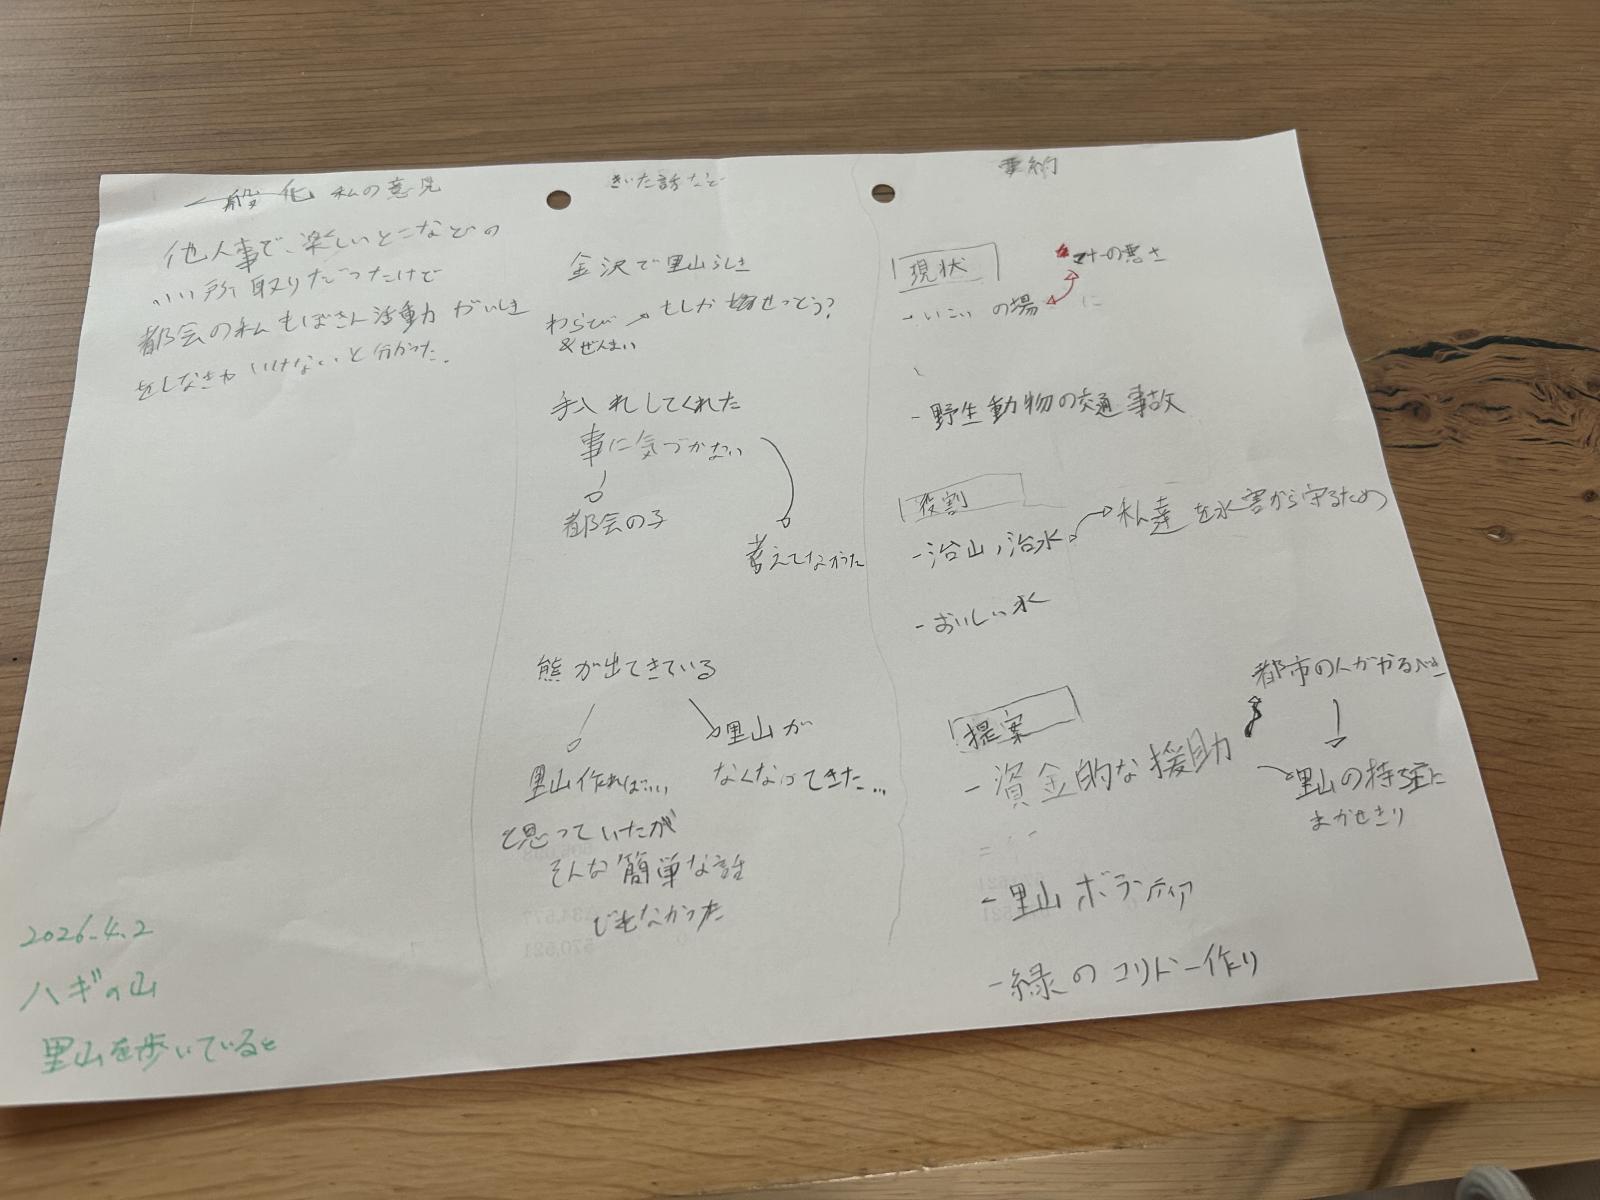 一般化 私の意見
他人事で、楽しいとこなどの
いい所取りだったけで
都会の私もばさん活動がいしき
をしなきゃいけないと分かった.
きいた話など
金沢で里山らしき
わらび
&ぜんまい
もしか
せっとう?
手入れしてくれた
事に気づかない
都会の子
考えてなかった
熊が出てきている
里山作れば...
里山が
なくなってきた...
と思っていたが
そんな簡単な話
でもなかった
要約
現状
マナーの悪さ
- いこいの場
に
- 野生動物の交通事故
役割
- 治山,治水
私達を水害から守るため
- おいしい水
提案
都市の人がやるべき
- 資金的な援助
里山の持ち主に
まかせきり
- 里山ボランティア
- 緑のコリドー作り
2026.4.2
ハギの山
里山を歩いていると